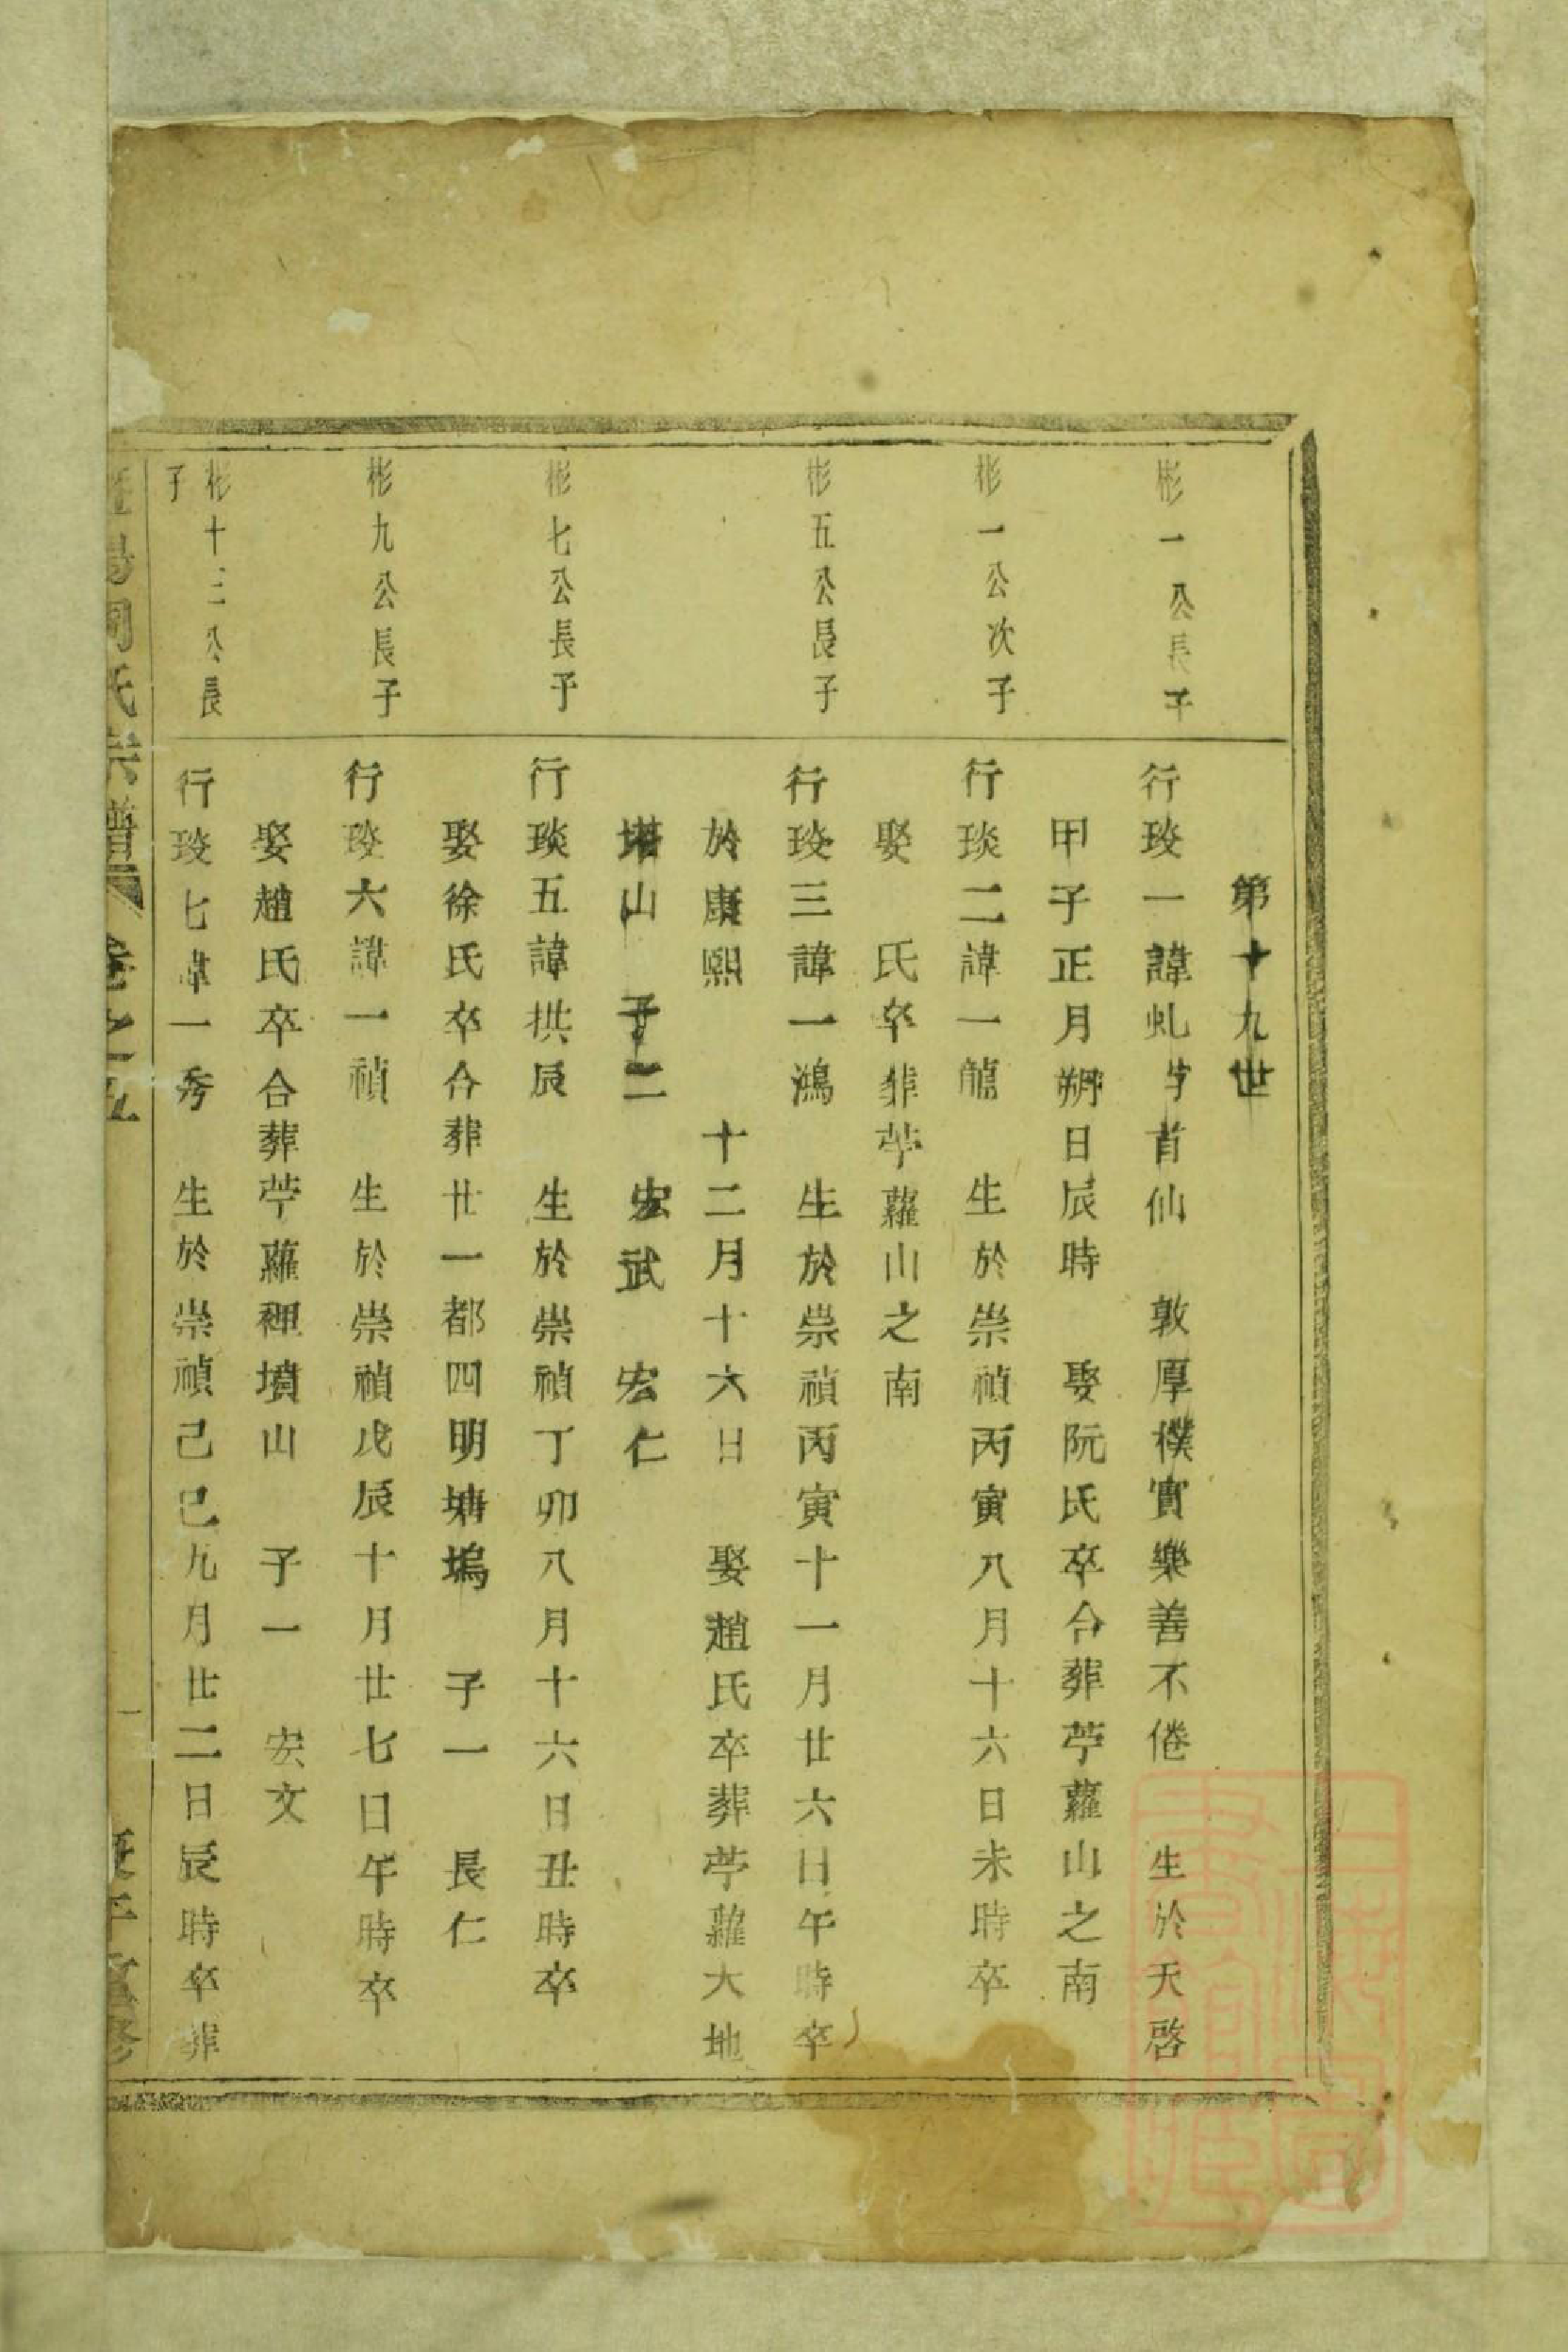 第十九世
彬一公長子
行琰一諱虬字首仙　敦厚樸實樂善不倦　生於天啓
甲子正月朔日辰時　娶阮氏卒合葬苧蘿山之南
彬一公次子
行琰二諱一龍　生於崇禎丙寅八月十六日未時卒
娶　氏卒葬苧蘿山之南
彬五公長子
行琰三諱一鴻　生於崇禎丙寅十一月廿六日午時卒
於康熙　十二月十六日　娶趙氏卒葬苧蘿大地
塔山　子二　宏武　宏仁
彬七公長子
行琰五諱拱辰　生於崇禎丁卯八月十六日丑時卒
娶徐氏卒合葬廿一都四明塘塢　子一　長仁
彬九公長子
行琰六諱一禎　生於崇禎戊辰十月廿七日午時卒
娶趙氏卒合葬苧蘿裡墳山　子一　宏文
彬十三公長
子
行琰七諱一秀　生於崇禎己巳九月廿二日辰時卒葬
氏宗譜　卷之五　一